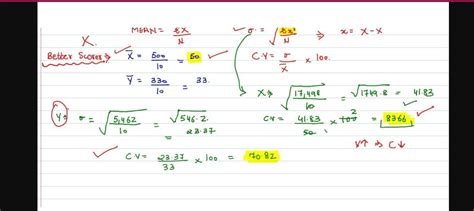 MEAN = Σx/N ✓ σ = √Σx²/N ⇒ x = X - X
X.
Better Scorer → ✓ X̄ = 500/10 = 50 ✓ C.V = σ/X̄ × 100.
Ȳ = 330/10 = 33.
X → √17,498/10 = √1749.8 = 41.83
Y → σ = √5,462/10 = √546.2 = 23.37
C.V = 41.83/50 × 100 = 8366 ✓
V↑ ⇒ C↓
✓ C.V = 23.37/33 × 100 = 70.82